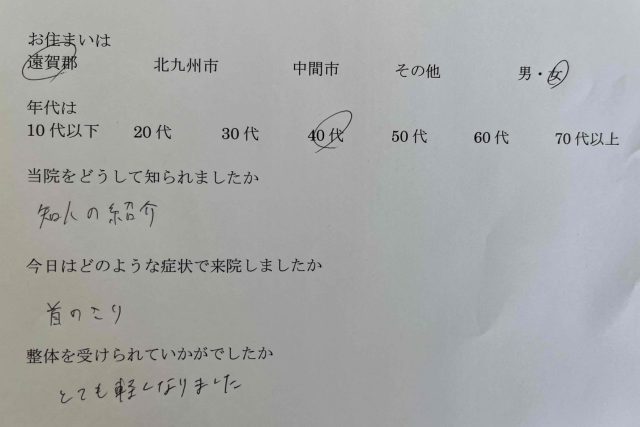 お住まいは
遠賀郡 北九州市 中間市 その他 男・女
年代は
10代以下 20代 30代 40代 50代 60代 70代以上
当院をどうして知られましたか
知人の紹介
今日はどのような症状で来院しましたか
首のこり
整体を受けられていかがでしたか
とても軽くなりました